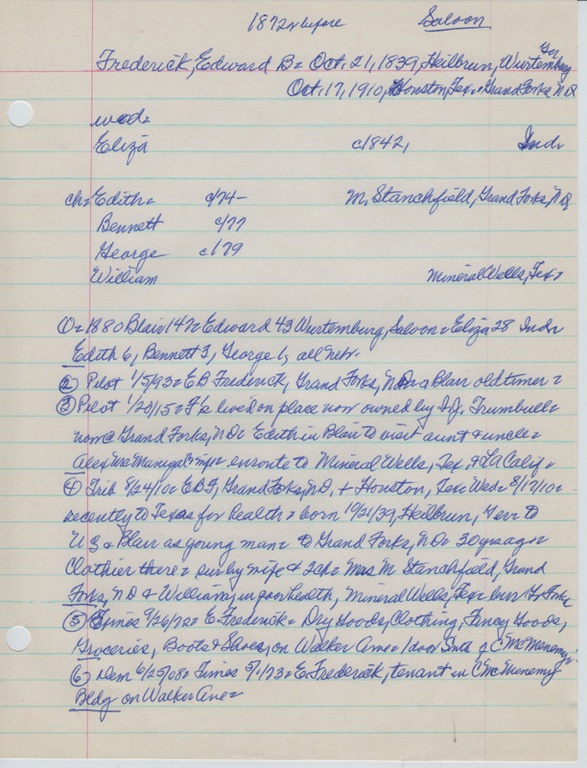 1872 or before Saloon
Frederick, Edward B- Oct. 21, 1839, Heilbrun, Wurtemburg Ger
Oct. 17, 1910, Houston, Tex- Grand Forks, N.D.
wed-
Eliza c1842, Ind-
ch- Edith- c/74- M. Stanchfield, Grand Forks, N.D.
Bennett c/77
George c/79
William Mineral Wells, Tex-
1- 1880 Blair 147- Edward 43 Wurtemburg, Saloon- Eliza 28 Ind-
Edith 6, Bennett 3, George 1, all Nebr.
2 Pilot 1/5/93- E B Frederick, Grand Forks, N.D. a Blair old timer-
3 Pilot 1/20/15- F's lived on place now owned by I.J. Trumbull-
now @ Grand Forks, ND- Edith in Blair to visit aunt & uncle-
Alex enroute to Mineral Wells, Tex, & LA Calif-
4 Trib 8/24/10- EBF, Grand Forks, N.D. + Houston, Tex- Wed- 8/17/10-
recently to Texas for health- born 10/21/39, Heilbrun, Ger- to
US- Blair as young man- to Grand Forks, N.D- 20 yrs ago-
Clothier there- sur by wife & 2ch- Mrs M. Stanchfield, Grand
Forks, N.D & William, in poor health, Mineral Wells, Tex- bur Gr Forks
5 Times 9/26/78- E Frederick- Dry Goods, Clothing, Fancy Goods,
Groceries, Boots & Shoes, on Walker Ave- 1 door of C McMenemy-
6 Dem 6/25/08- Times 5/1/73- E Frederick, tenant in C McMenemy
Bldg on Walker Ave-